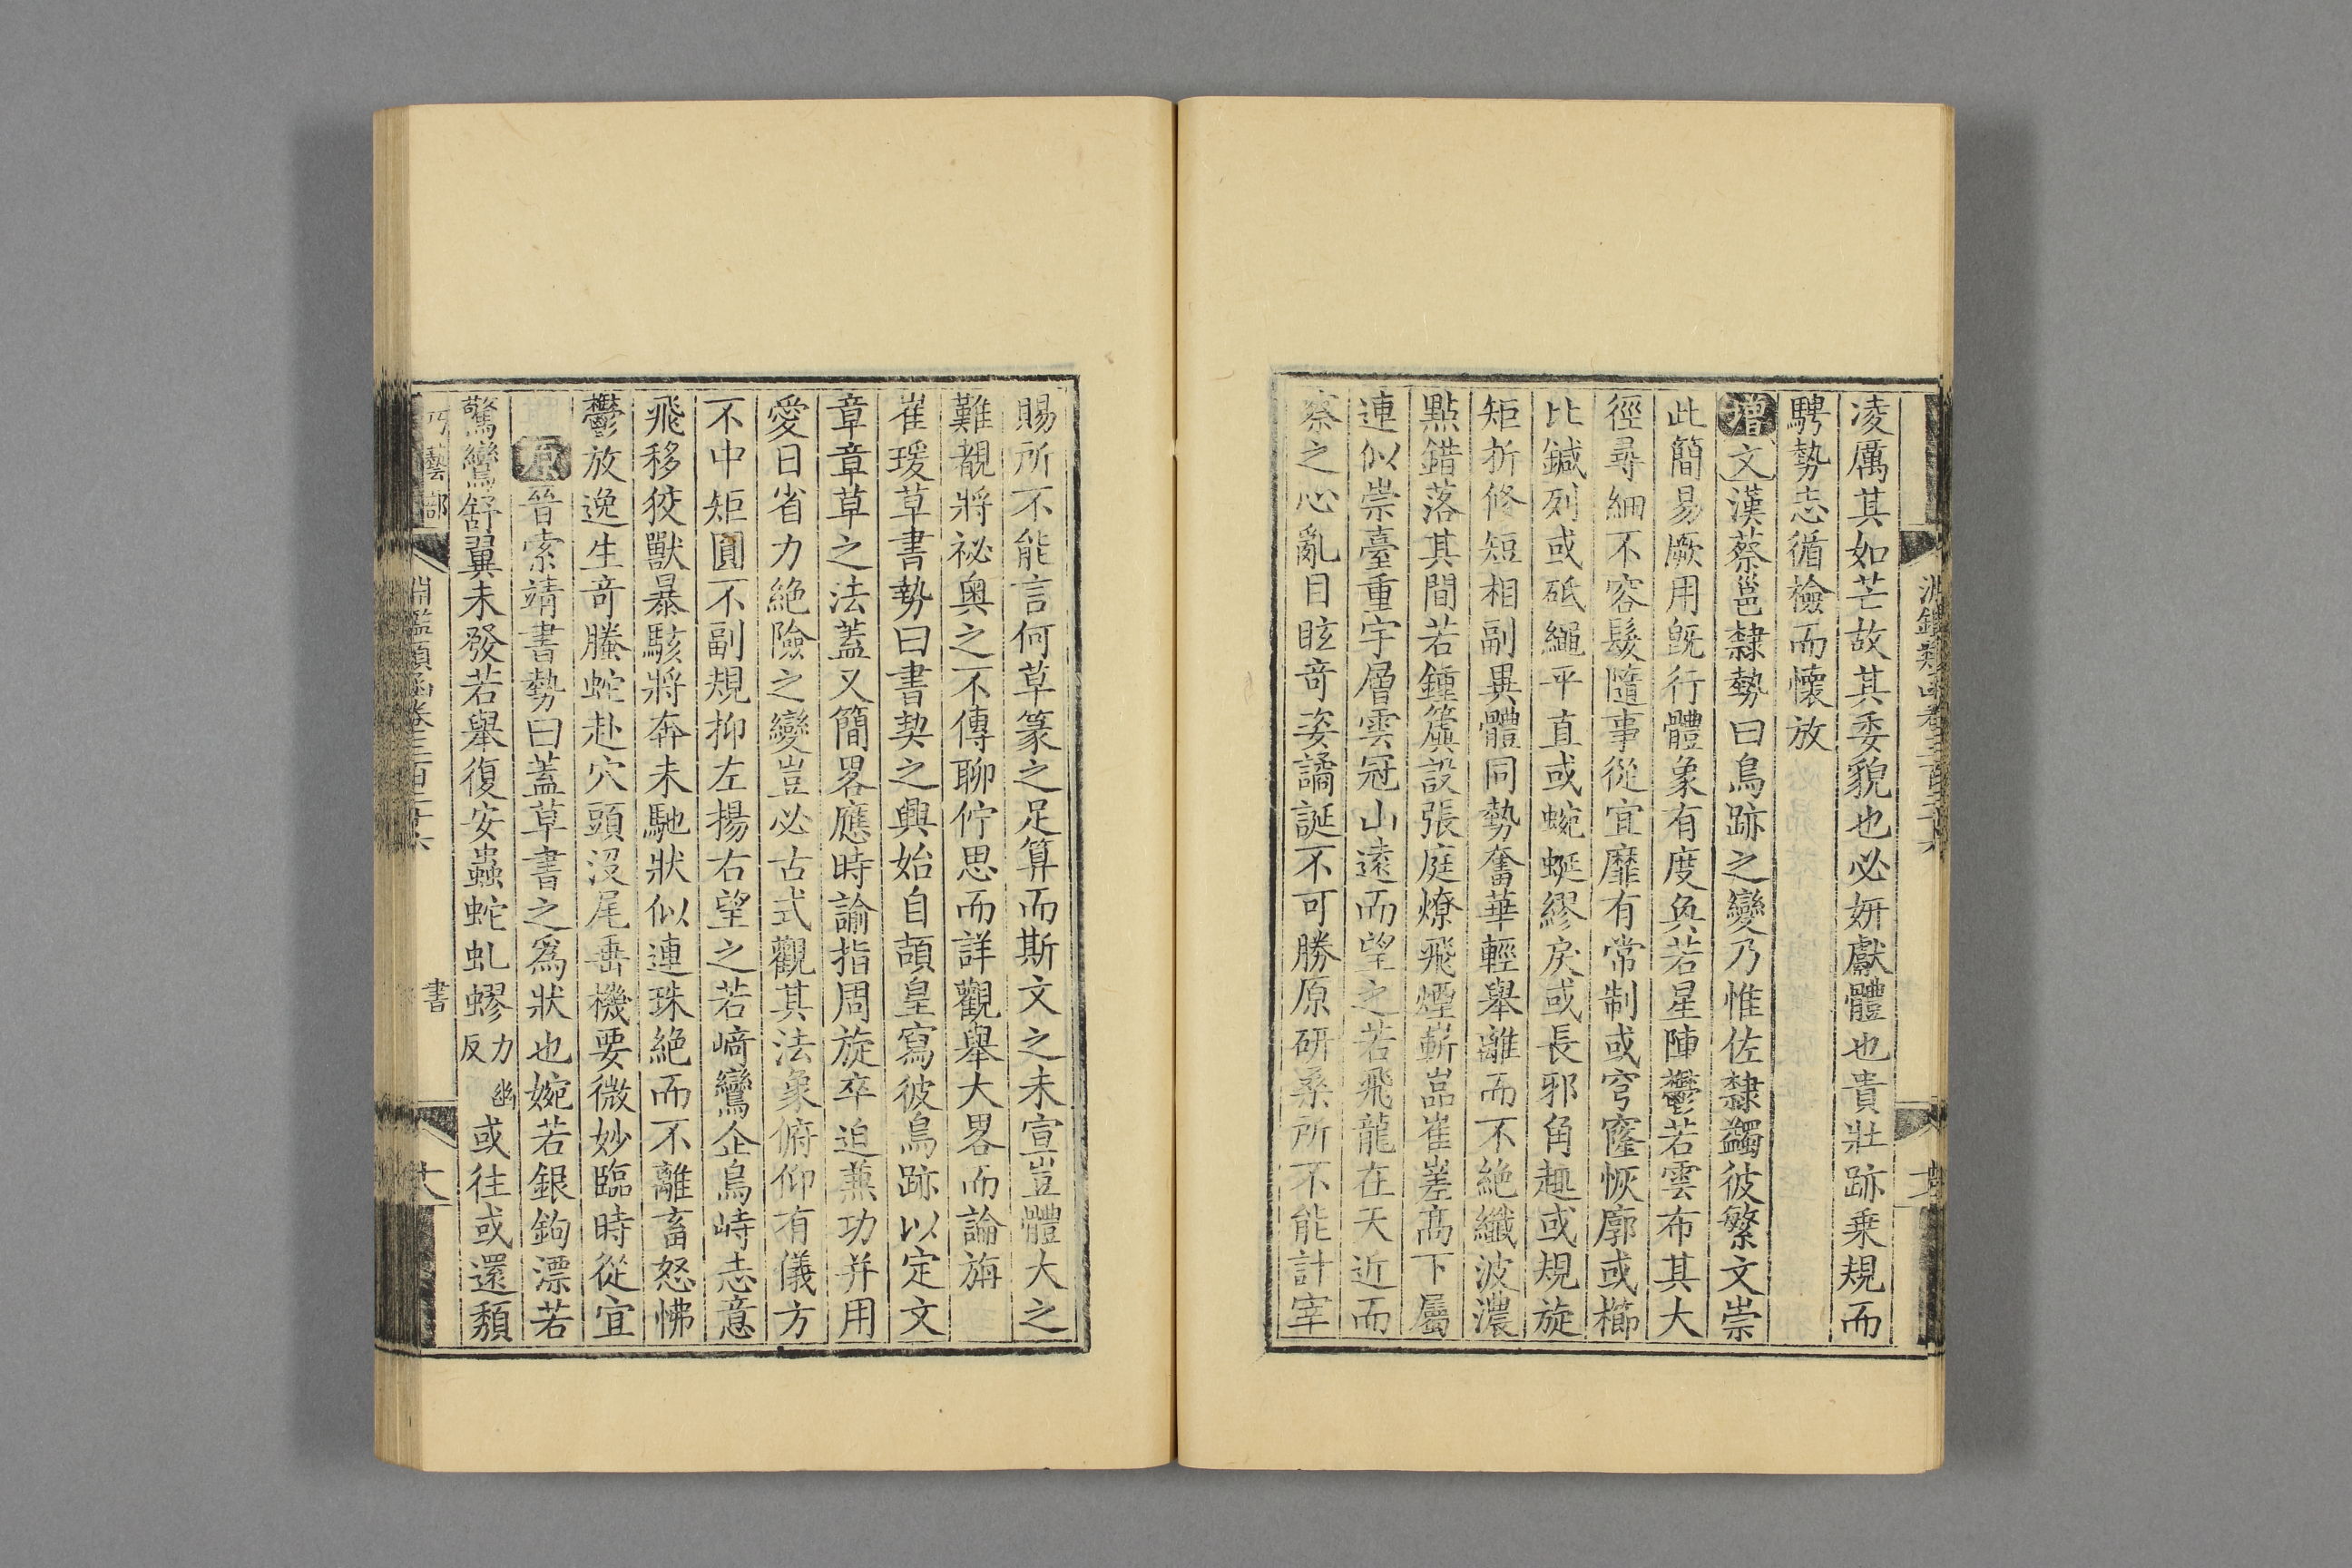 凌厲其如芒故其委貌也必妍獻體也貴壯跡乗規而
騁勢志循檢而懷放
增文漢蔡邕隸勢曰鳥跡之變乃惟佐隸蠲彼繁文崇
此簡易厥用旣行體象有度奐若星陣鬱若雲布其大
徑尋細不容髮隨事從宜靡有常制或穹窿恢廓或櫛
比鍼列或砥繩平直或蜿蜒繆戾或長邪角趣或規旋
矩折修短相副異體同勢奮華輕舉離而不絶纖波濃
點錯落其間若鍾簴設張庭燎飛煙嶄嵓崔嵳髙下屬
連似崇臺重宇層雲冠山遠而望之若飛龍在天近而
察之心亂目眩奇姿譎誕不可勝原研桑所不能計宰
賜所不能言何草篆之足算而斯文之未宣豈體大之
難覩將祕奥之不傳聊佇思而詳觀舉大畧而論旃
崔瑗草書勢曰書契之興始自頡皇寫彼鳥跡以定文
章章草之法蓋又簡畧應時諭指周旋卒迫兼功并用
愛日省力絶險之變豈必古式觀其法象俯仰有儀方
不中矩圓不副規抑左揚右望之若﨑鸞企鳥峙志意
飛移狡獸暴駭將奔未馳狀似連珠絶而不離畜怒怫
鬱放逸生奇螣蛇赴穴頭沒尾垂機要微妙臨時從宜
原晉索靖書勢曰蓋草書之爲狀也婉若銀鉤漂若
驚鸞舒翼未發若舉復安蟲蛇虬蟉力幽反或往或還頽
巧藝部 淵鑑類函卷三百二十六 書